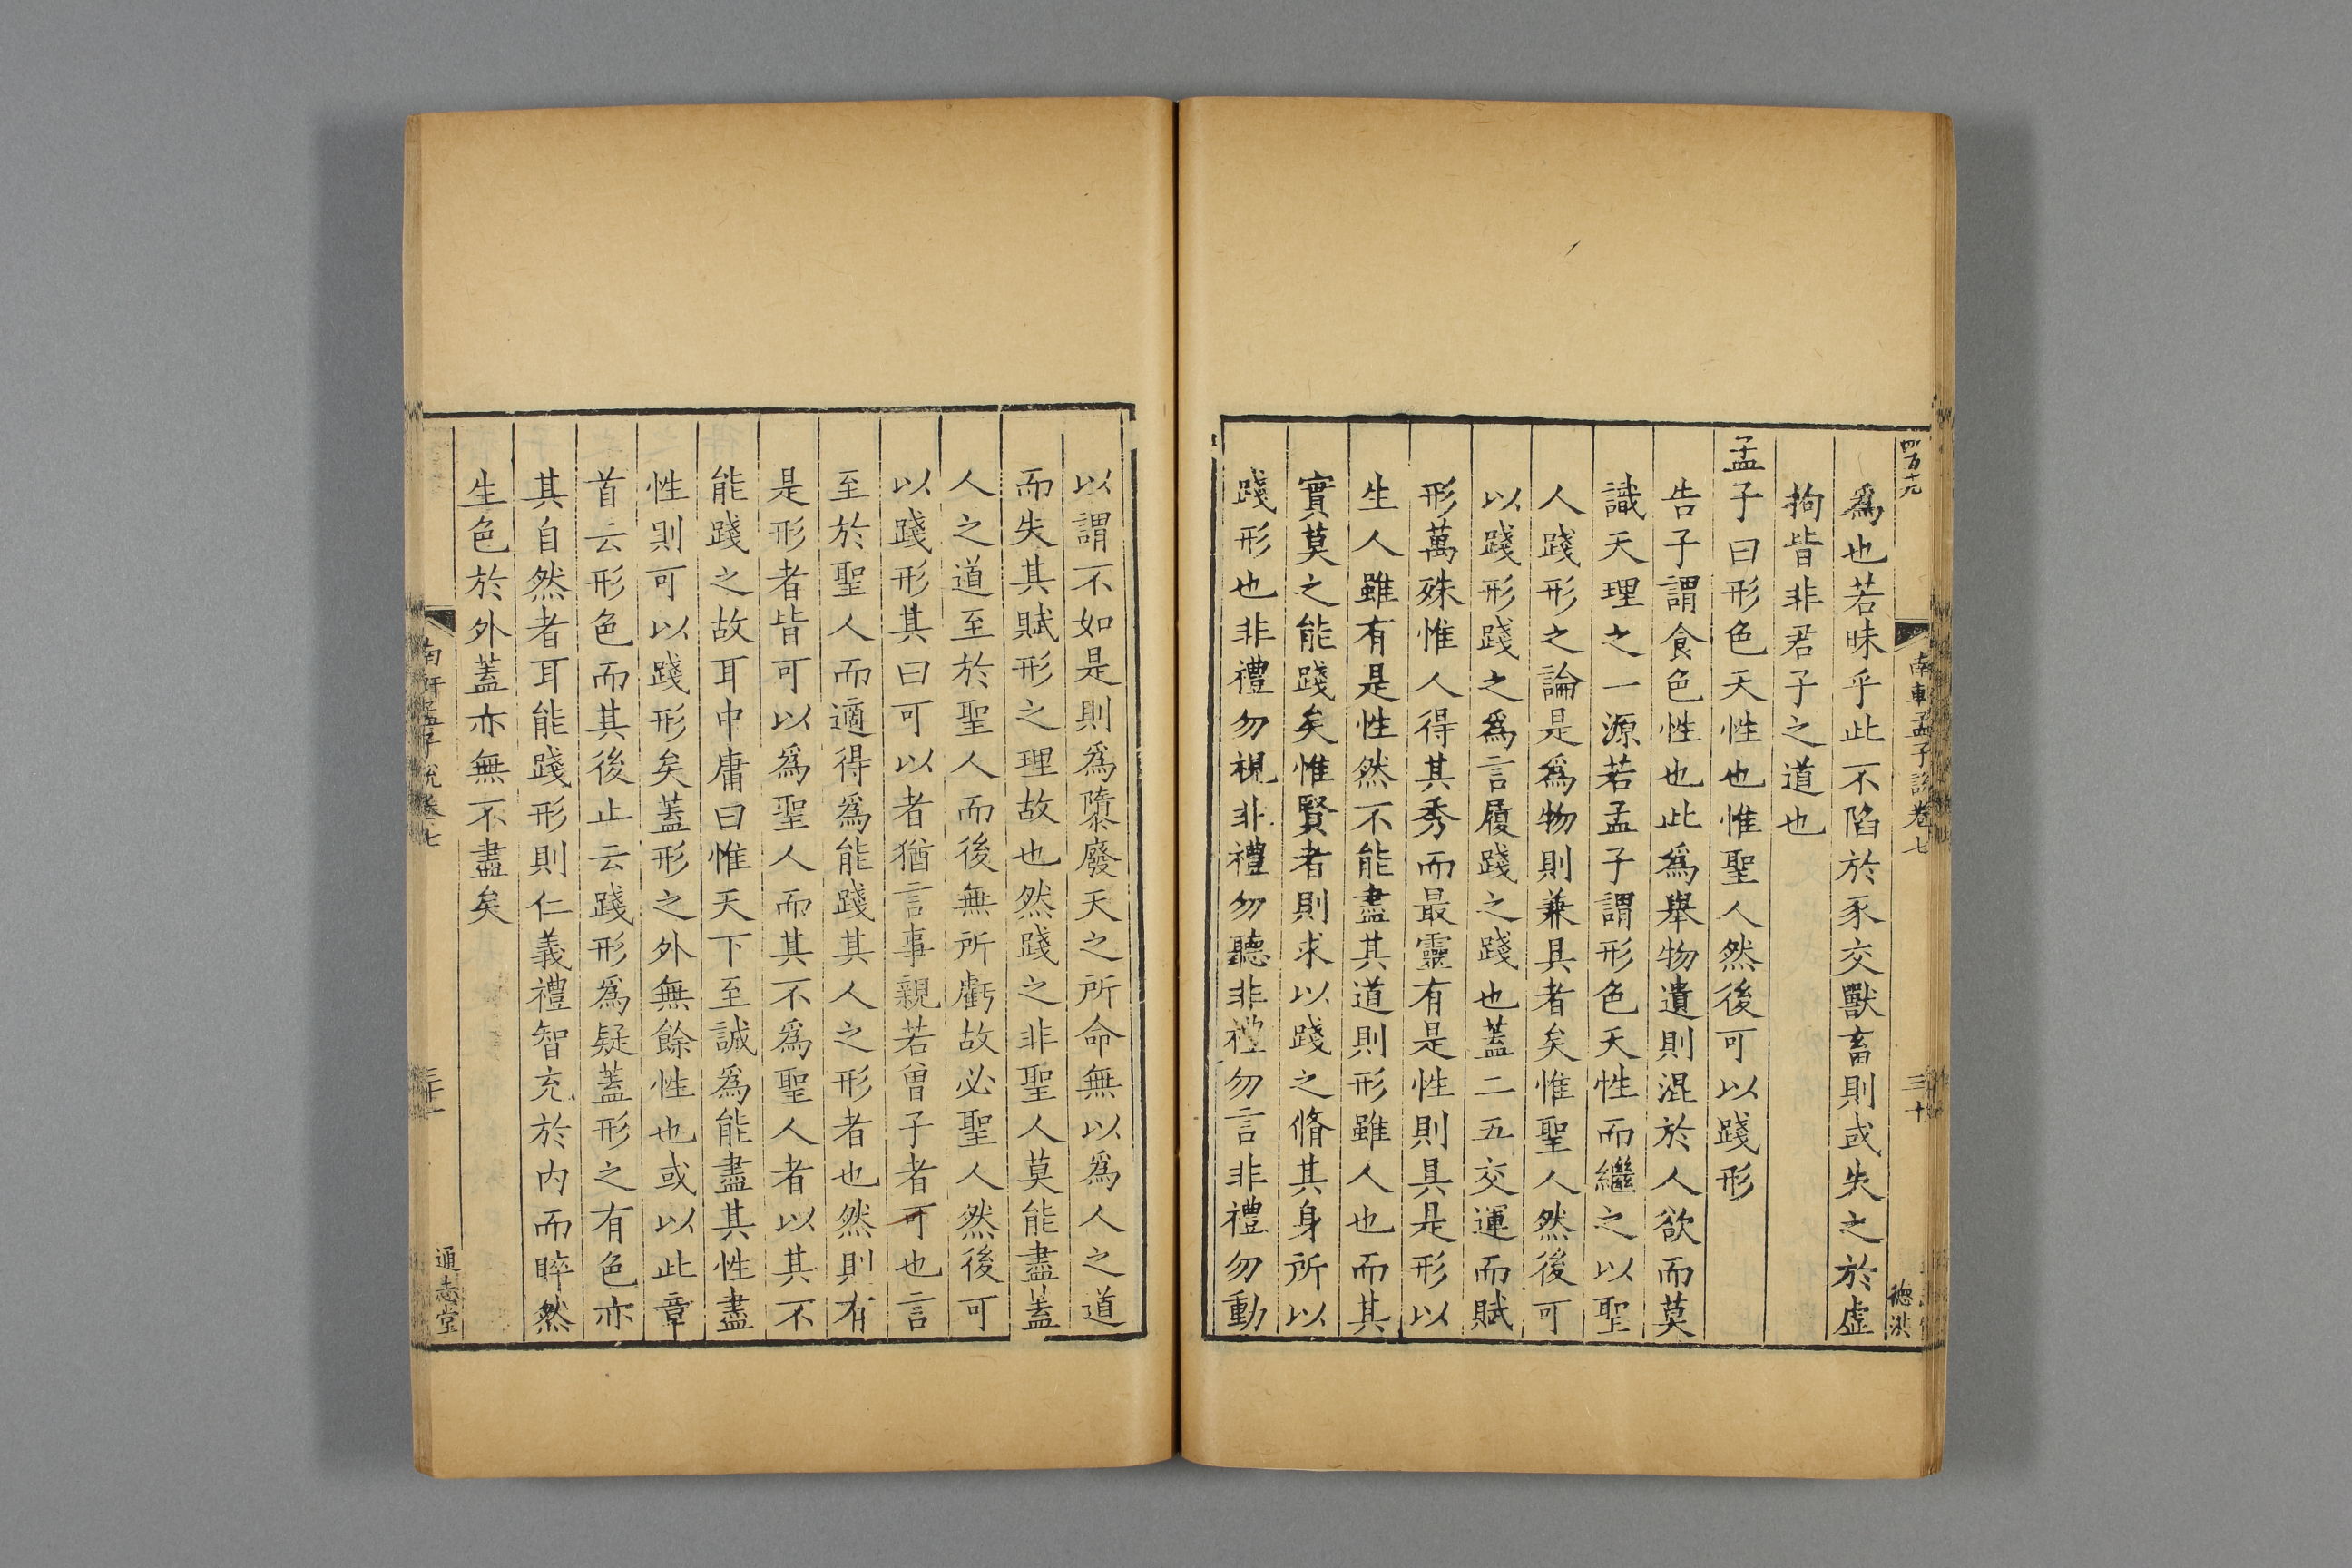 四百十九
南軒孟子說卷七
三十
德洪
爲也若昧乎此不陷於豕交獸畜則或失之於虛
拘皆非君子之道也
孟子曰形色天性也惟聖人然後可以踐形
告子謂食色性也此爲舉物遺則混於人欲而莫
識天理之一源若孟子謂形色天性而繼之以聖
人踐形之論是爲物則兼具者矣惟聖人然後可
以踐形踐之爲言履踐之踐也蓋二五交運而賦
形萬殊惟人得其秀而最靈有是性則具是形以
生人雖有是性然不能盡其道則形雖人也而其
實莫之能踐矣惟賢者則求以踐之脩其身所以
踐形也非禮勿視非禮勿聽非禮勿言非禮勿動
以謂不如是則爲隳廢天之所命無以爲人之道
而失其賦形之理故也然踐之非聖人莫能盡蓋
人之道至於聖人而後無所虧故必聖人然後可
以踐形其曰可以者猶言事親若曾子者可也言
至於聖人而適得爲能踐其人之形者也然則有
是形者皆可以爲聖人而其不爲聖人者以其不
能踐之故耳中庸曰惟天下至誠爲能盡其性盡
性則可以踐形矣蓋形之外無餘性也或以此章
首云形色而其後止云踐形爲疑蓋形之有色亦
其自然者耳能踐形則仁義禮智充於內而睟然
生色於外蓋亦無不盡矣
南軒孟子說卷七
通志堂